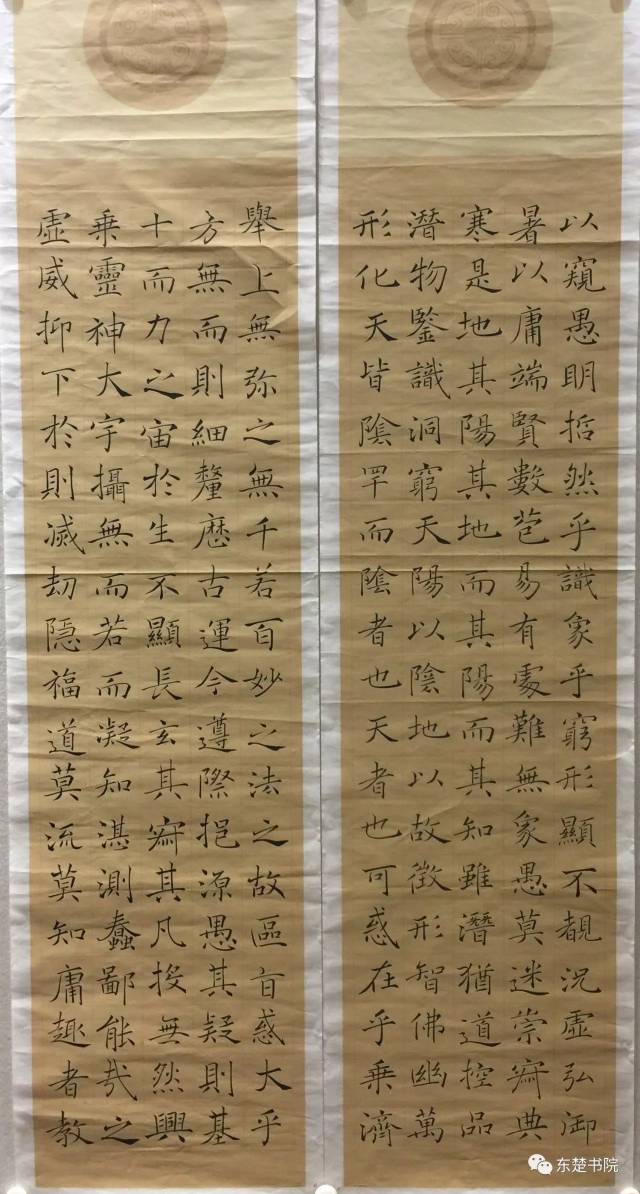 形潛寒暑以
化物是以窺
天鑒地庸愚
皆識其端明
陰洞陽賢哲
罕窮其數然
而天地苞乎
陰陽而易識
者以其有象
也陰陽處乎
天地而難窮
者以其無形
也故知象顯
可徵雖愚不
惑形潛莫覩
在智猶迷況
乎佛道崇虛
乘幽控寂弘
濟萬品典御
虛乘十方舉
威靈而無上
抑神力而無
下大之則弥
於宇宙細之
則攝於釐無
滅無生歷千
劫而不古若
隱若顯運百
福而長今妙
道凝玄遵之
莫知其際法
流湛寂挹之
莫測其源故
知蠢凡愚區
庸鄙投其旨
趣能無疑惑
者哉然則大
教之興基乎
东楚书院